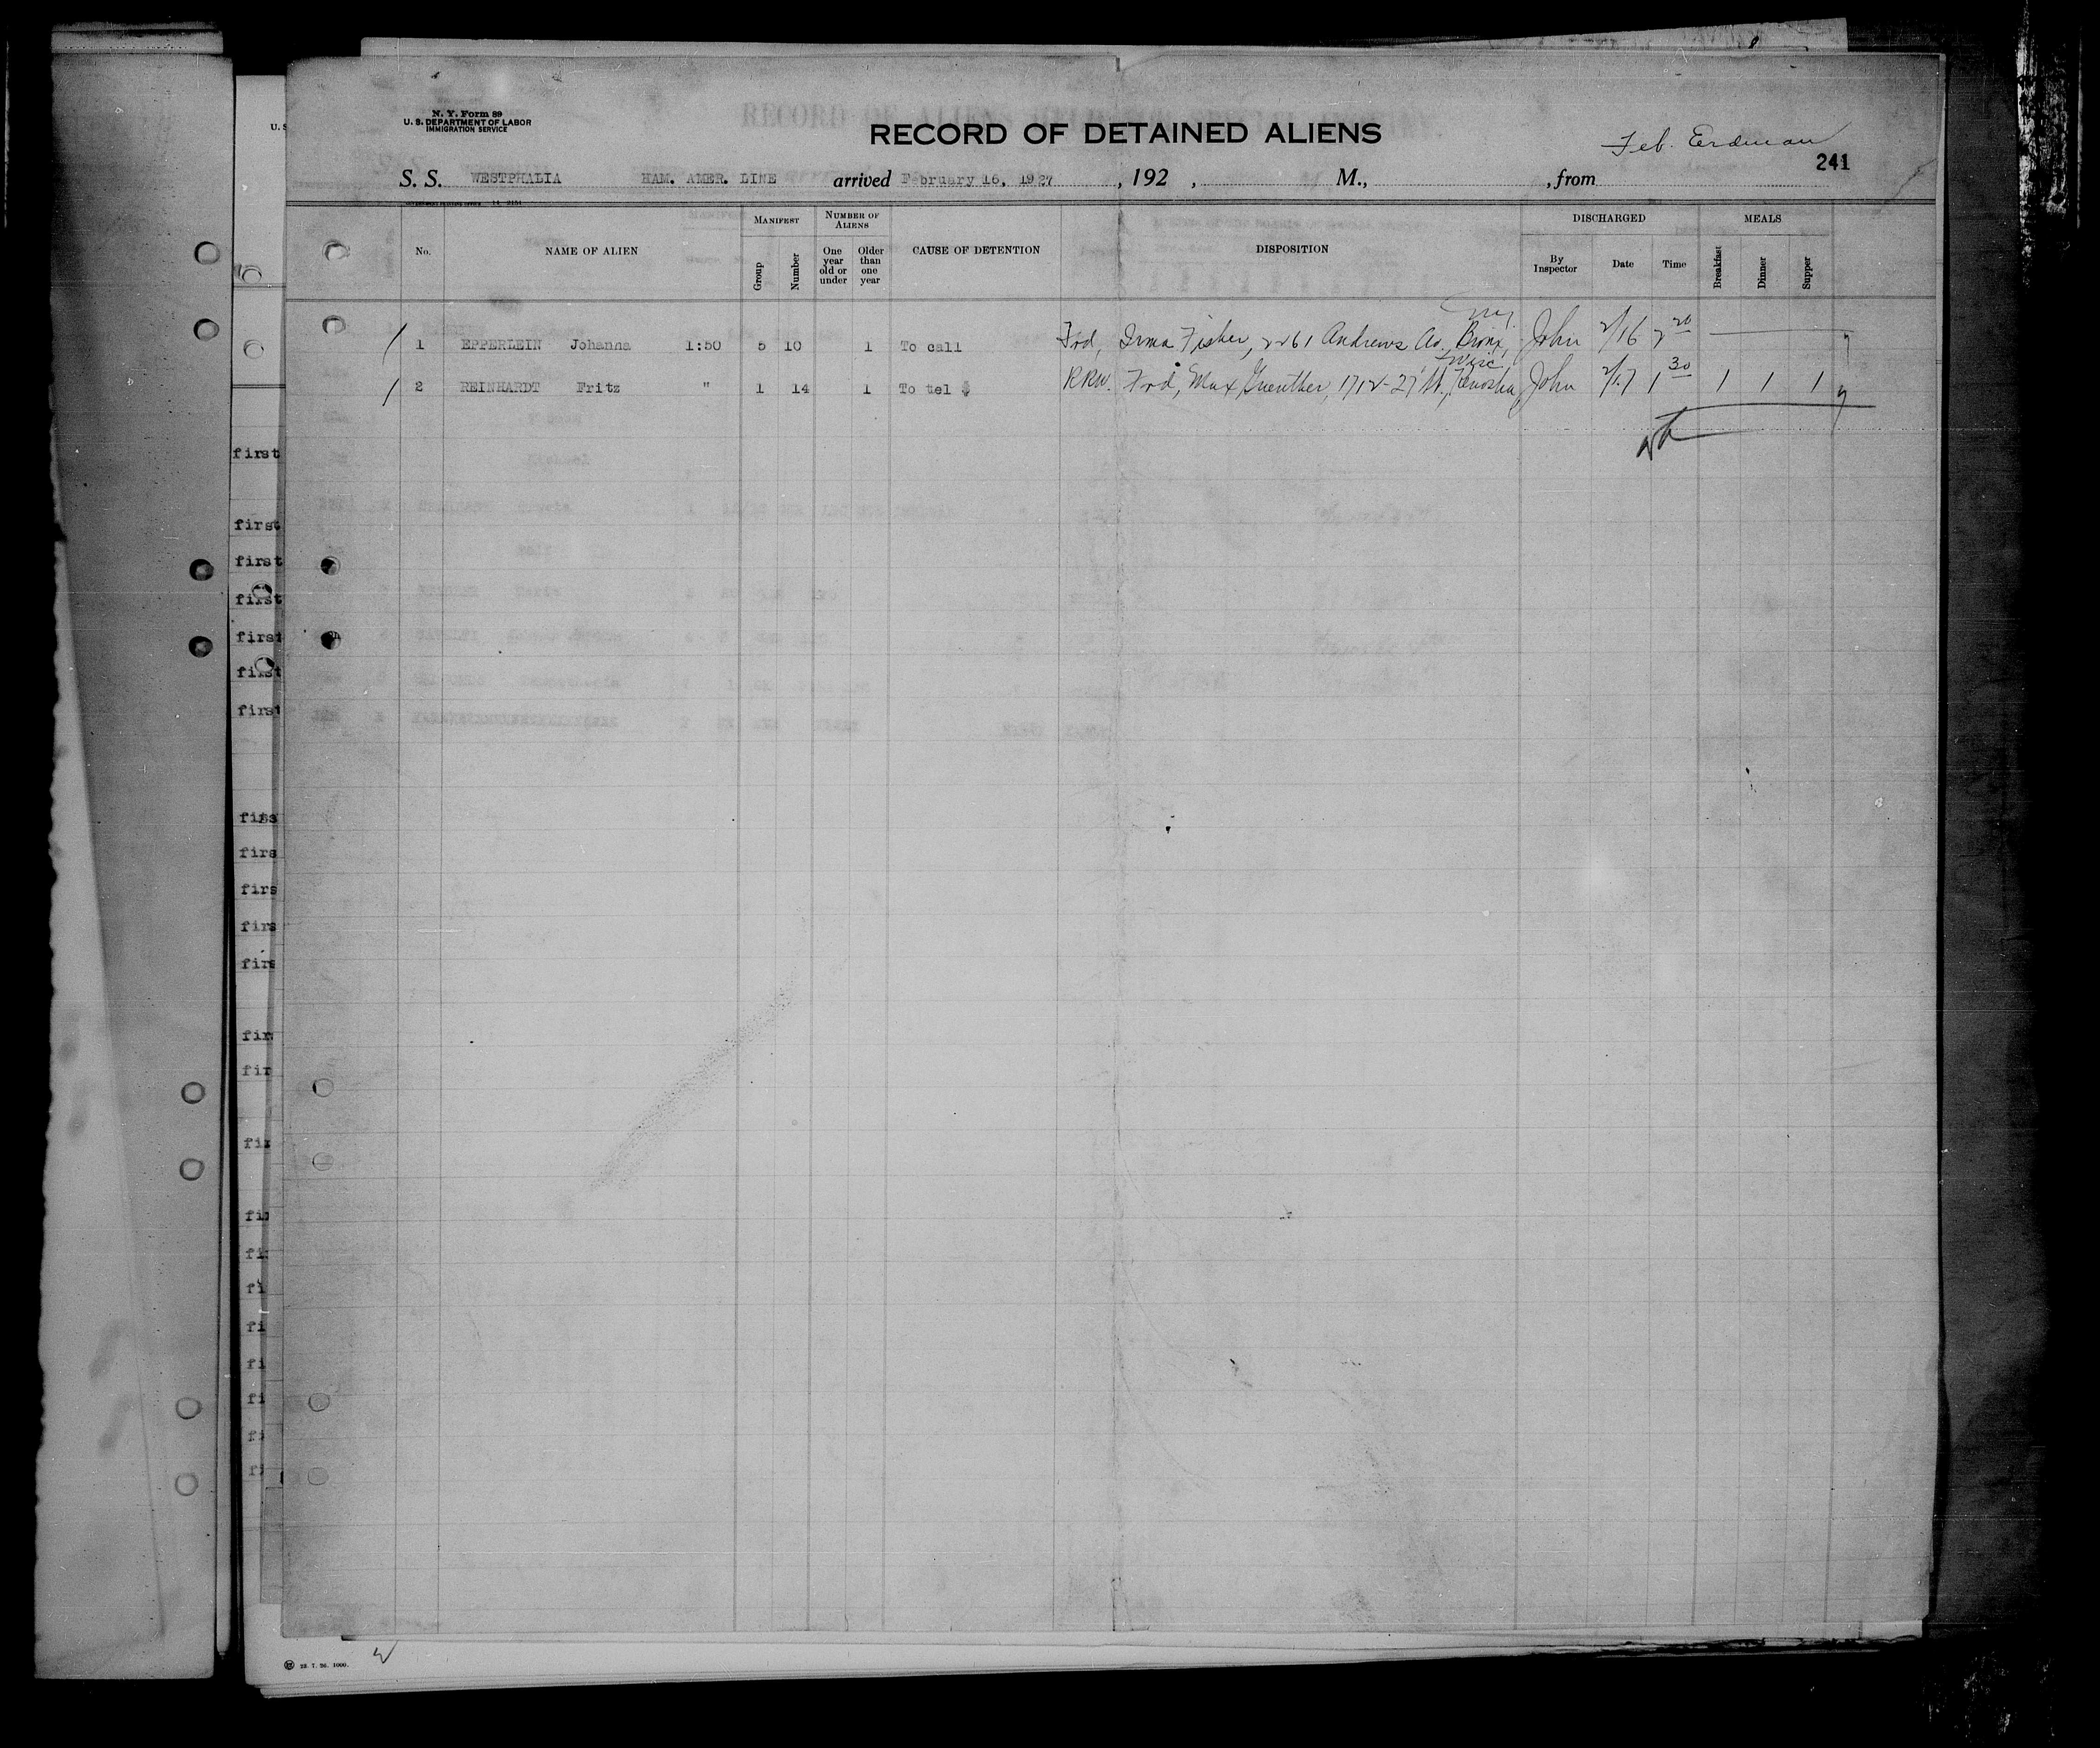 N. Y. Form 89
U. S. DEPARTMENT OF LABOR
IMMIGRATION SERVICE
RECORD OF DETAINED ALIENS
241
S. S. WESTPHALIA HAM. AMER. LINE arrived February 16, 1927, 192 , M., , from
No. NAME OF ALIEN MANIFEST Group Number NUMBER OF ALIENS One year old or under Older than one year CAUSE OF DETENTION DISPOSITION DISCHARGED By Inspector Date Time MEALS Breakfast Dinner Supper
1 EPPERLEIN Johanna 1:50 5 10 1 To call Frd, Irma Fisher, 2261 Andrews Av., Bronx, N.Y. John 2/16 2 20
2 REINHARDT Fritz " 1 14 1 To tel $ RRW. Frd, Max Guenther, 1712-27 St., Kenosha, Wisc John 2/17 1 30 1 1 1
first
first
first
first
first
first
first
firs
firs
firs
firs
fir
fir
fir
fi
fi
fi
fi
fi
fi
23. 7. 26. 1000.